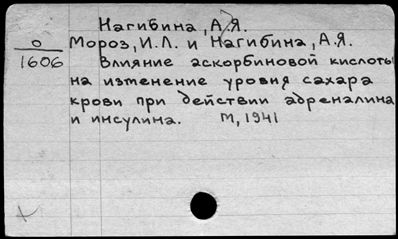 Нагибина, А.Я.
О
1606
Мороз, И.Л. и Нагибина, А.Я.
Влияние аскорбиновой кислоты
на изменение уровня сахара
крови при действии адреналина
и инсулина. М, 1941